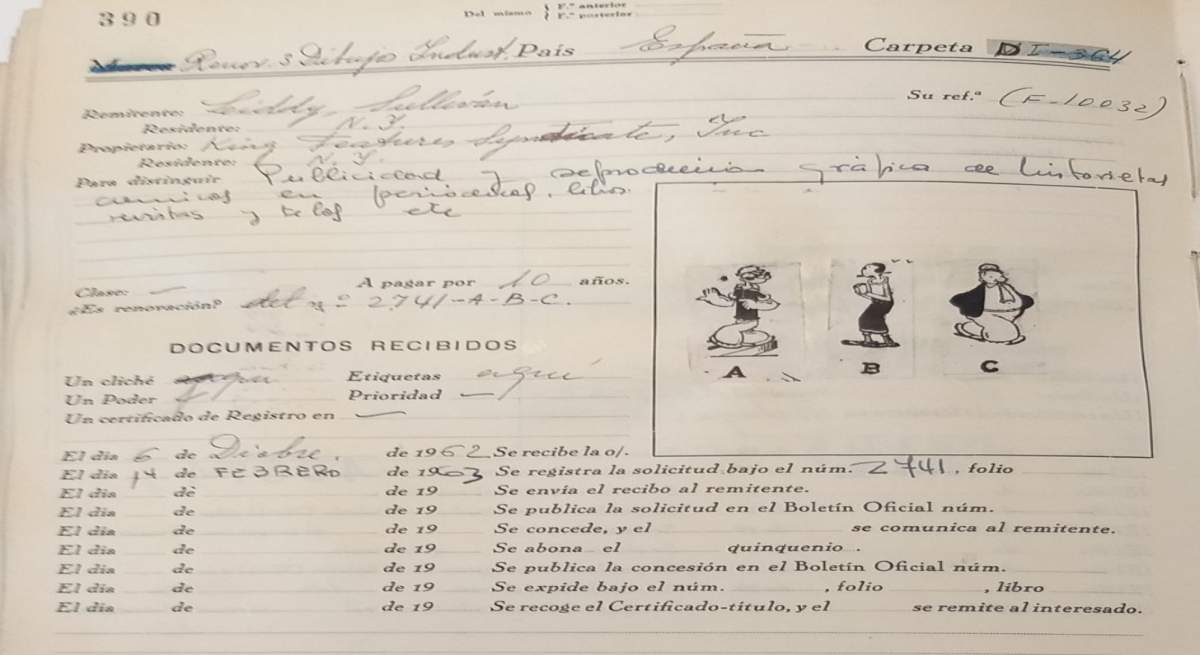 390
Del mismo { F.º anterior
F.º posterior
Marca Renov. 3 Dibujo Indust. País España Carpeta DI-364
Su ref.ª (F-10032)
Remitente: Liddy, Sullivan
Residente: N.Y.
Propietario: King Features Syndicate, Inc
Residente: N.Y.
Para distinguir Publicidad y reproducción gráfica de historietas
cómicas en periódicos, libros
revistas y telas etc
Clase: — A pagar por 10 años.
¿Es renovación? del nº 2.741-A-B-C.
DOCUMENTOS RECIBIDOS
Un cliché aquí Etiquetas aquí
Un Poder Prioridad —
Un certificado de Registro en —
A B C
El día 6 de Dicbre. de 1962 Se recibe la o/.
El día 14 de FEBRERO de 1963 Se registra la solicitud bajo el núm. 2741, folio
El día de de 19 Se envía el recibo al remitente.
El día de de 19 Se publica la solicitud en el Boletín Oficial núm.
El día de de 19 Se concede, y el se comunica al remitente.
El día de de 19 Se abona el quinquenio.
El día de de 19 Se publica la concesión en el Boletín Oficial núm.
El día de de 19 Se expide bajo el núm. , folio , libro
El día de de 19 Se recoge el Certificado-título, y el se remite al interesado.